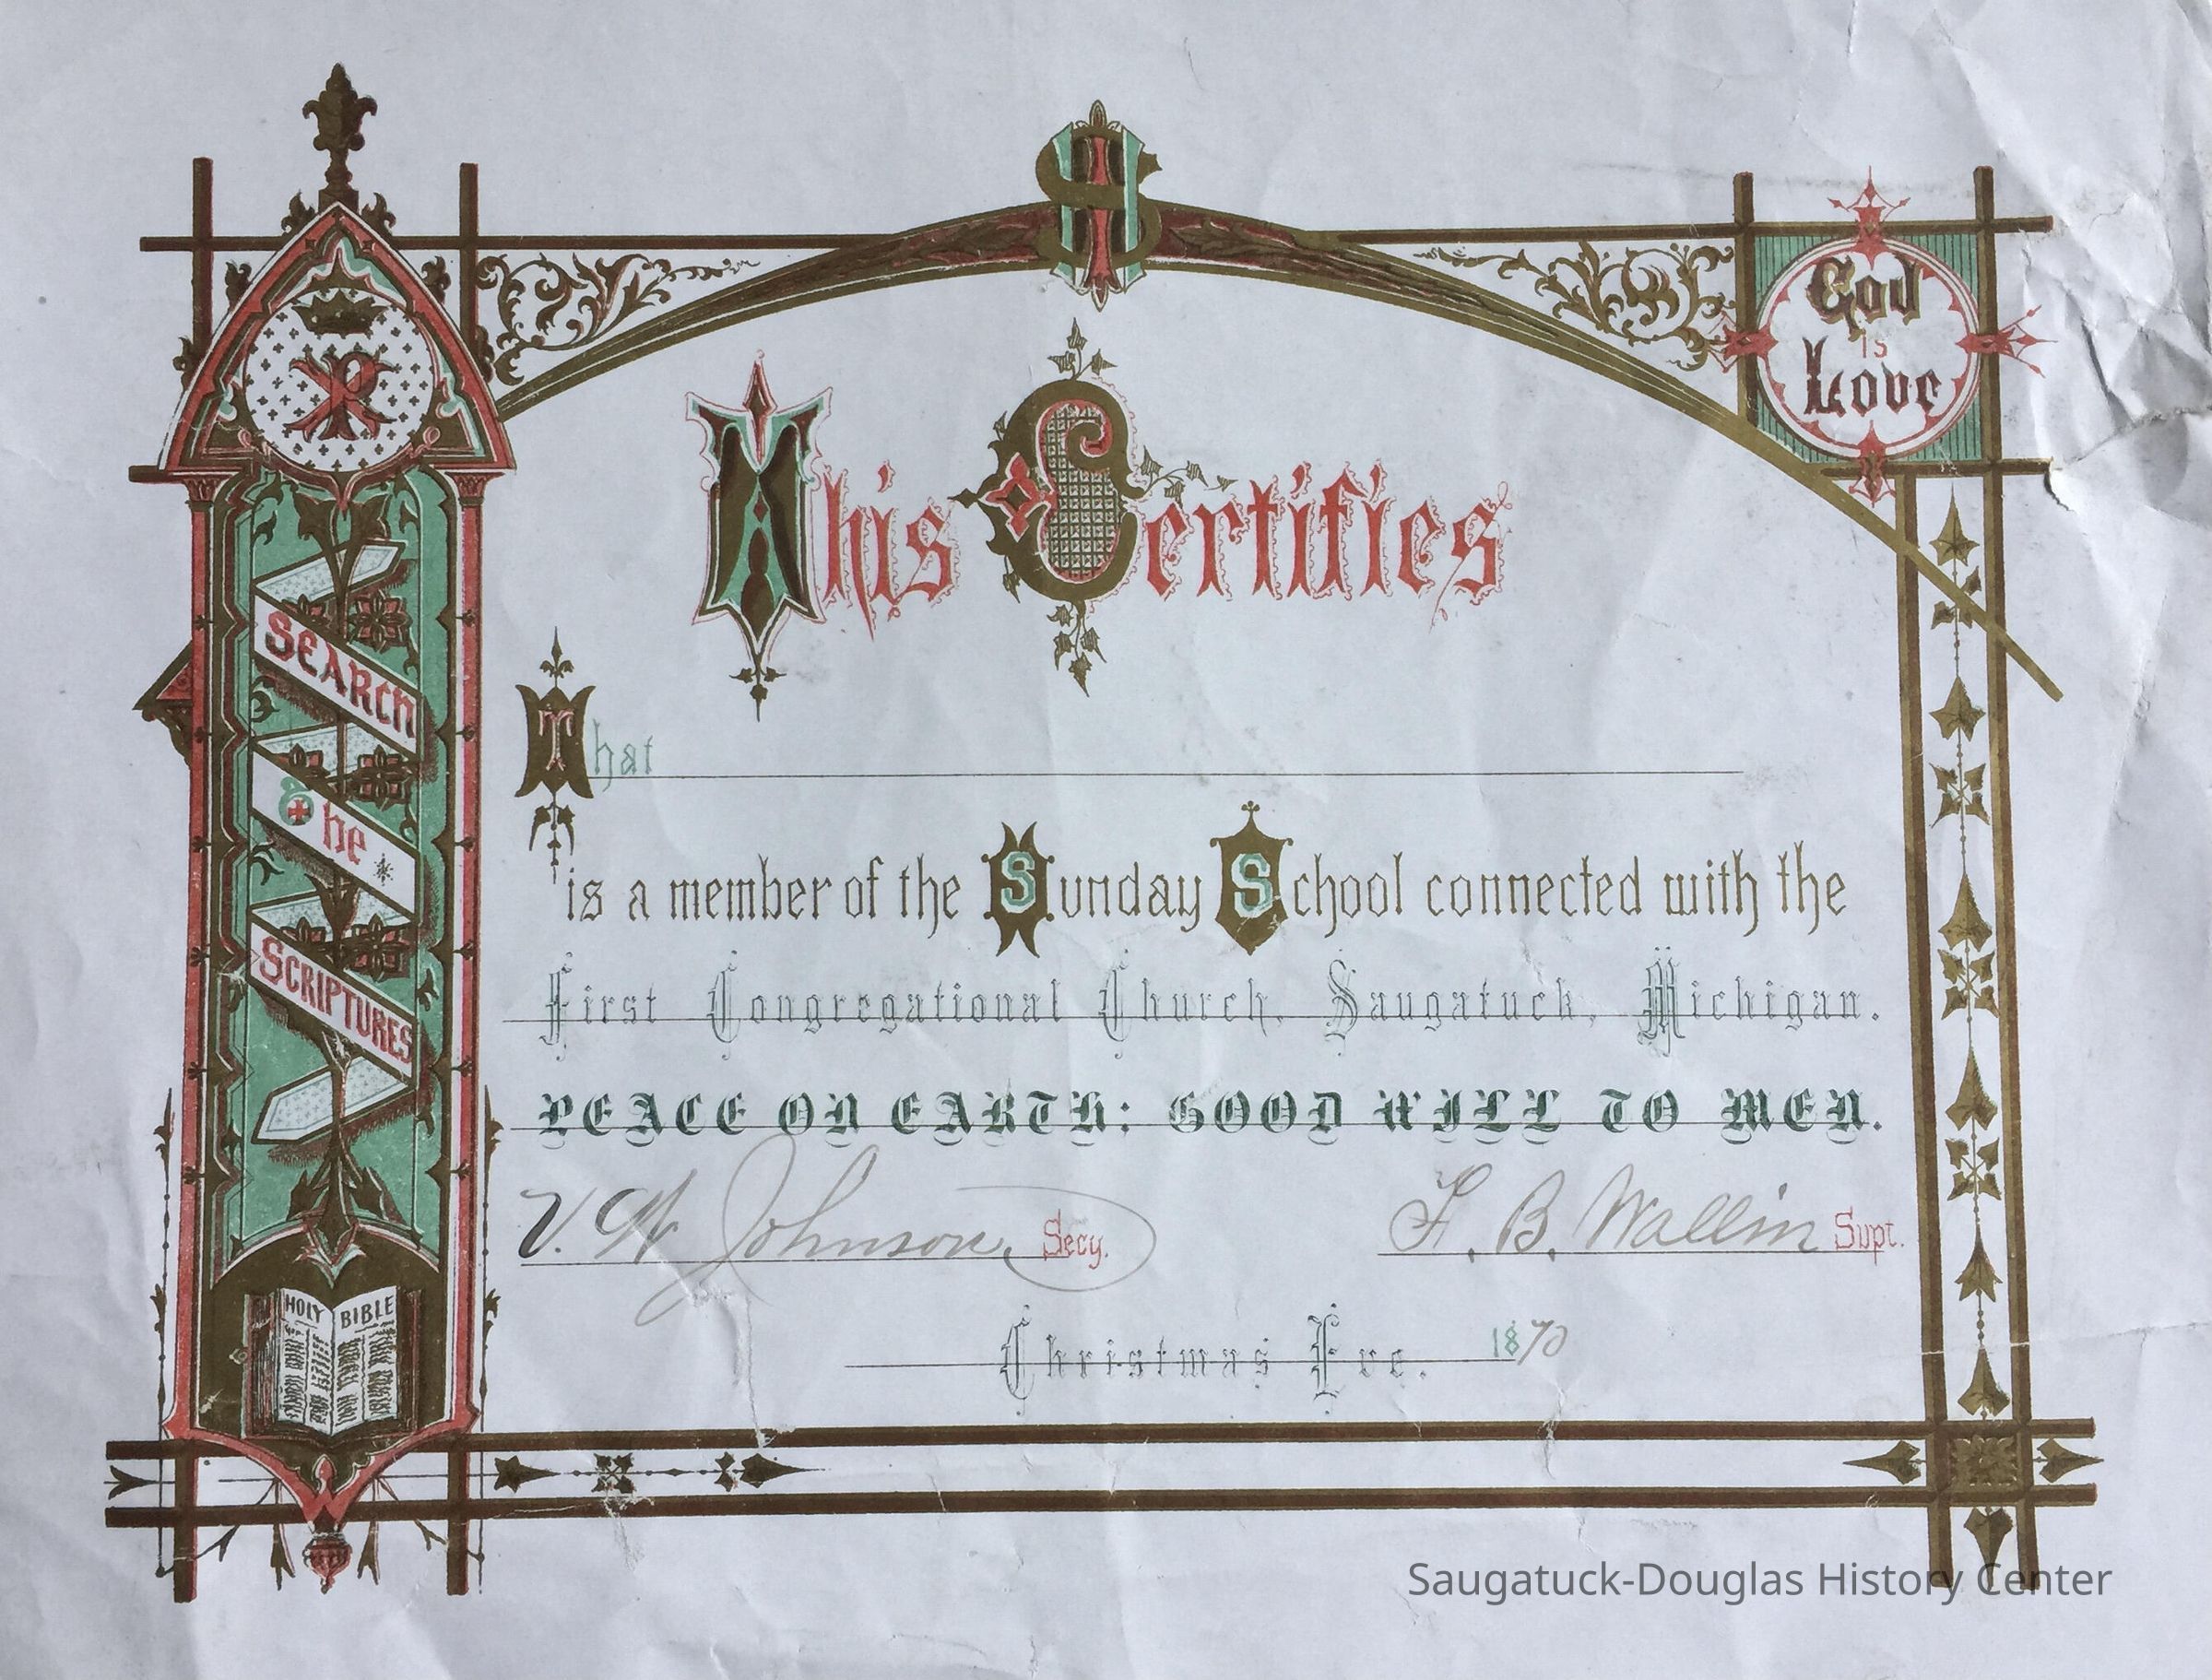 God
is
Love
This Certifies
SEARCH
The
SCRIPTURES
HOLY BIBLE
That
is a member of the Sunday School connected with the
First Congregational Church, Saugatuck, Michigan.
PEACE ON EARTH: GOOD WILL TO MEN.
V. W. Johnson, Secy.
F. B. Wallin Supt.
Christmas Eve. 1870
Saugatuck-Douglas History Center